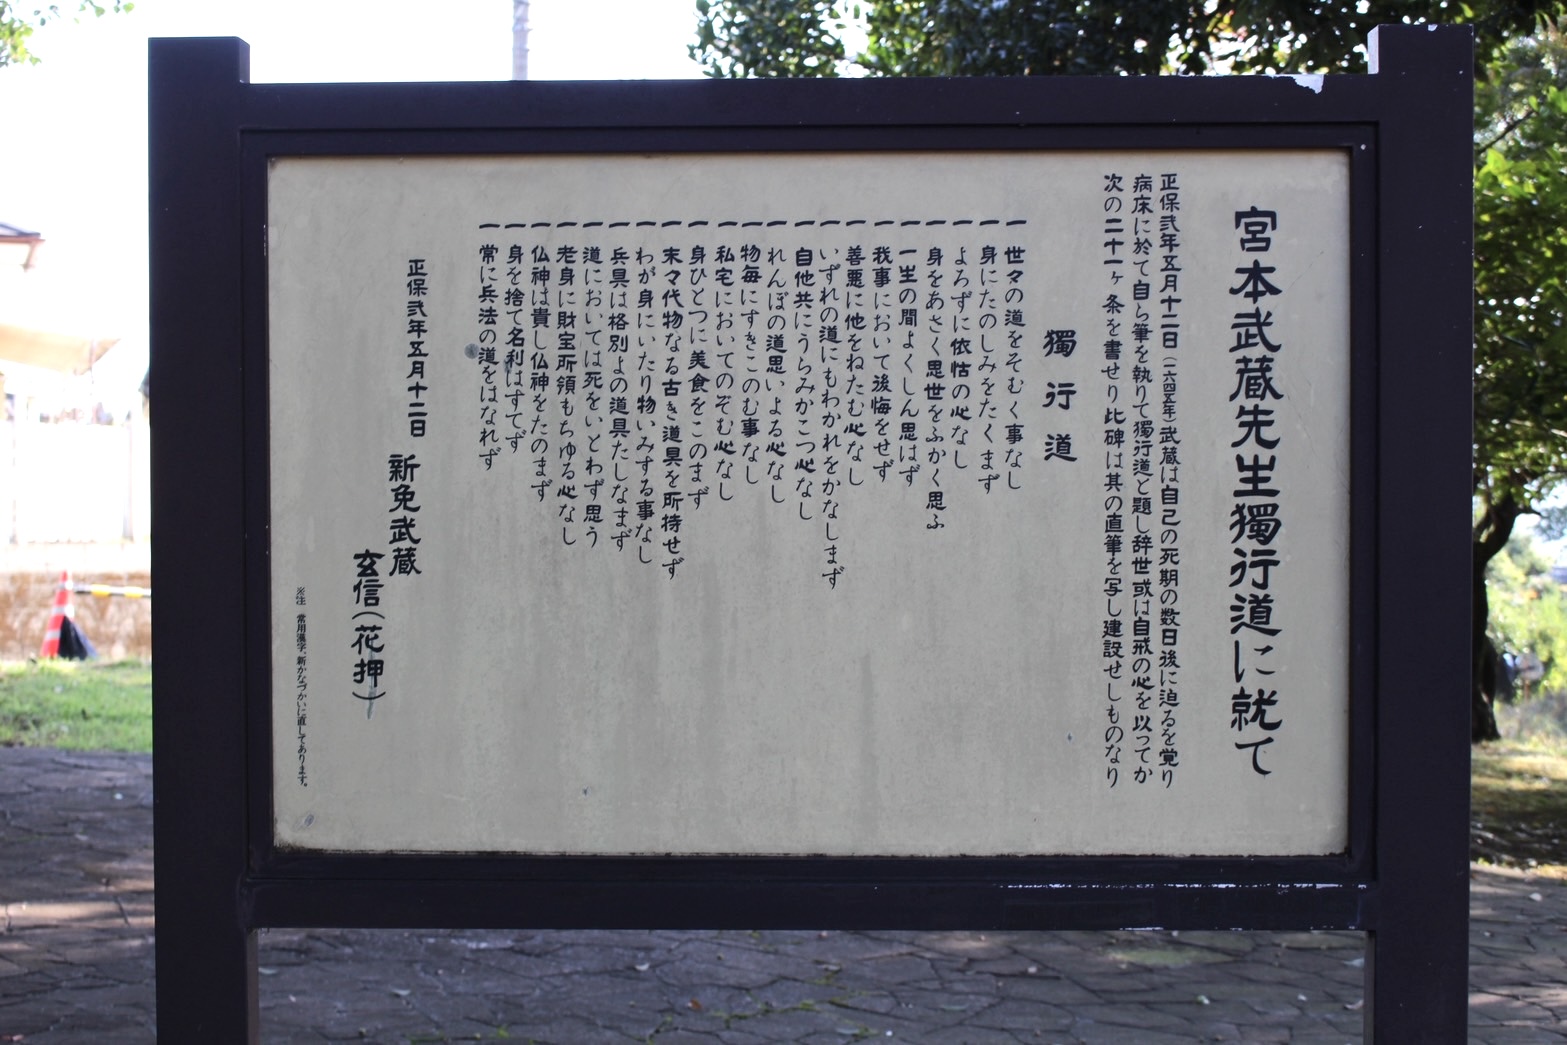 宮本武蔵先生獨行道に就て
正保弐年五月十二日(一六四五年)武蔵は自己の死期の数日後に迫るを覚り
病床に於て自ら筆を執りて獨行道と題し辞世或は自戒の心を以ってか
次の二十一ヶ条を書せり比碑は其の直筆を写し建設せしものなり
獨行道
一 世々の道をそむく事なし
一 身にたのしみをたくまず
一 よろずに依怙の心なし
一 身をあさく思世をふかく思ふ
一 一生の間よくしん思はず
一 我事において後悔をせず
一 善悪に他をねたむ心なし
一 いずれの道にもわかれをかなしまず
一 自他共にうらみかこつ心なし
一 れんぼの道思いよる心なし
一 物毎にすきこのむ事なし
一 私宅においてのぞむ心なし
一 身ひとつに美食をこのまず
一 末々代物なる古き道具を所持せず
一 わが身にいたり物いみする事なし
一 兵具は格別よの道具たしなまず
一 道においては死をいとわず思う
一 老身に財宝所領もちゆる心なし
一 仏神は貴し仏神をたのまず
一 身を捨て名利はすてず
一 常に兵法の道をはなれず
正保弐年五月十二日 新免武蔵
玄信(花押)
※注 常用漢字、新かなづかいに直してあります。